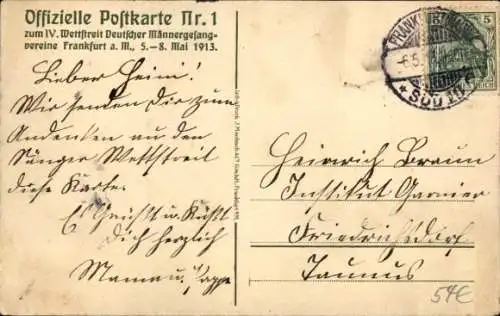 Offizielle Postkarte Nr. 1
zum IV. Wettstreit Deutscher Männergesang-
vereine Frankfurt a. M., 5.-8. Mai 1913.
Lieber Heini!
Wir senden Dir zum
Andenken an den
Sänger Wettstreit
diese Karte.
Es grüßt u. küßt
Dich herzlich
Mama u. Pappa
FRANKFURT
-6.5.
* SÜD
5
REICH
Heinrich Braun
Institut Garnier
Friedrichsdorf
Taunus
54€